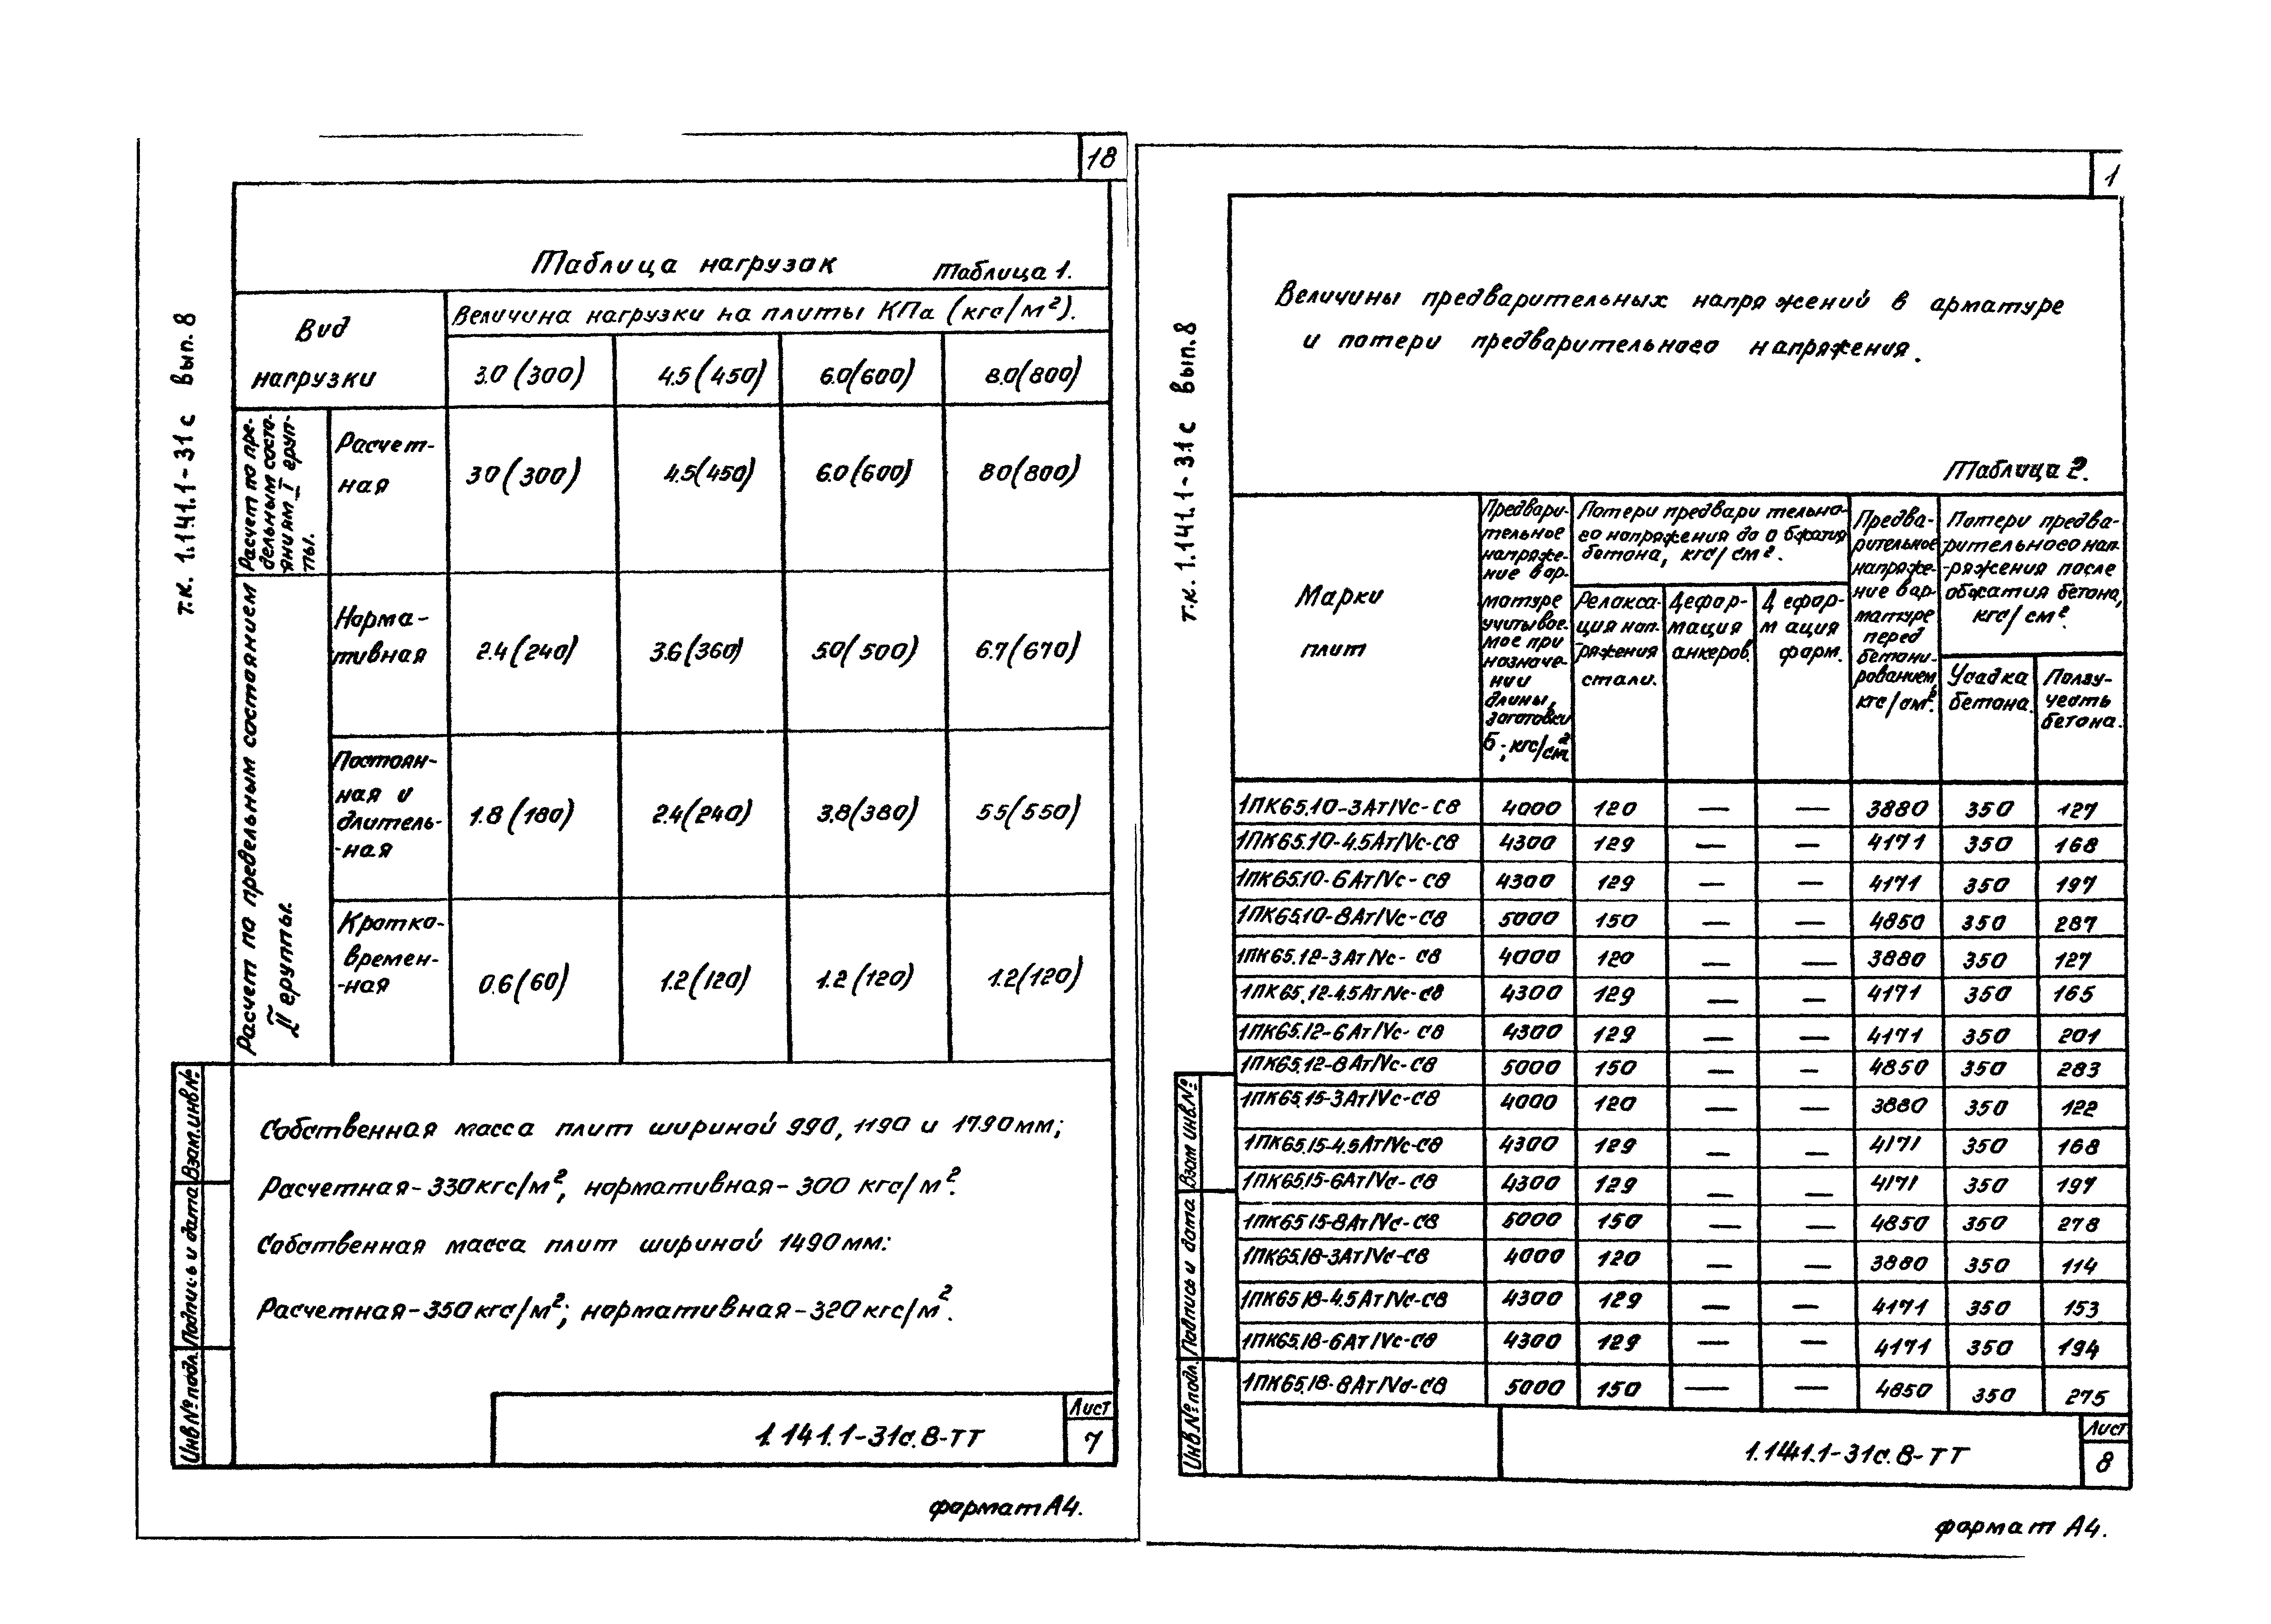 18
т.к. 1.141.1-31с вып. 8
Таблица нагрузок
Таблица 1.
Вид нагрузки
Величина нагрузки на плиты КПа (кгс/м²).
3.0 (300) 4.5 (450) 6.0 (600) 8.0 (800)
Расчет по пре-
дельным состо-
яниям I груп-
пы.
Расчет-
ная
3.0 (300) 4.5 (450) 6.0 (600) 8.0 (800)
Расчет по предельным состоянием
II группы.
Норма-
тивная
2.4 (240) 3.6 (360) 5.0 (500) 6.7 (670)
Постоян-
ная и
длитель-
-ная
1.8 (180) 2.4 (240) 3.8 (380) 5.5 (550)
Кротко-
времен-
-ная
0.6 (60) 1.2 (120) 1.2 (120) 1.2 (120)
Собственная масса плит шириной 990, 1190 и 1790мм;
Расчетная-330кгс/м², нормативная-300 кгс/м².
Собственная масса плит шириной 1490мм:
Расчетная-350кгс/м²; нормативная-320кгс/м².
Взам.инв№
Подпись и дата
Инв№подл.
1.141.1-31с.8-ТТ
Лист
7
формат А4.
1
т.к. 1.141.1-31с вып.8
Величины предварительных напряжений в арматуре
и потери предварительного напряжения.
Таблица 2.
Марки
плит
Предвари-
тельное
напряже-
ние в ар-
матуре
учитывое-
мое при
назначе-
нии
длины,
заготовки
б ; кгс/см²
Потери предварительно-
го напряжения до обжатия
бетона, кгс/см².
Релакса-
ция нап-
ряжения
стали.
Дефор-
мация
анкеров.
Дефор-
мация
форм.
Предва-
рительное
напряже-
ние в ар-
матуре
перед
бетони-
рованием,
кгс/см².
Потери предва-
рительного нап-
-ряжения после
обжатия бетона,
кгс/см².
Усадка
бетона.
Ползу-
честь
бетона.
1ПК65.10-3АтIVс-С8 4000 120 — — 3880 350 127
1ПК65.10-4.5АтIVс-С8 4300 129 — — 4171 350 168
1ПК65.10-6АтIVс-С8 4300 129 — — 4171 350 197
1ПК65.10-8АтIVс-С8 5000 150 — — 4850 350 287
1ПК65.12-3АтIVс-С8 4000 120 — — 3880 350 127
1ПК65.12-4.5АтIVс-С8 4300 129 — — 4171 350 165
1ПК65.12-6АтIVс-С8 4300 129 — — 4171 350 201
1ПК65.12-8АтIVс-С8 5000 150 — — 4850 350 283
1ПК65.15-3АтIVс-С8 4000 120 — — 3880 350 122
1ПК65.15-4.5АтIVс-С8 4300 129 — — 4171 350 168
1ПК65.15-6АтIVс-С8 4300 129 — — 4171 350 197
1ПК65 15-8АтIVс-С8 5000 150 — — 4850 350 278
1ПК65.18-3АтIVс-С8 4000 120 — — 3880 350 114
1ПК65 18-4.5АтIVс-С8 4300 129 — — 4171 350 153
1ПК65.18-6АтIVс-С8 4300 129 — — 4171 350 194
1ПК65.18-8АтIVс-С8 5000 150 — — 4850 350 275
Взам инв.№
Подпись и дата
Инв.№подл.
1.141.1-31с.8-ТТ
Лист
8
формат А4.